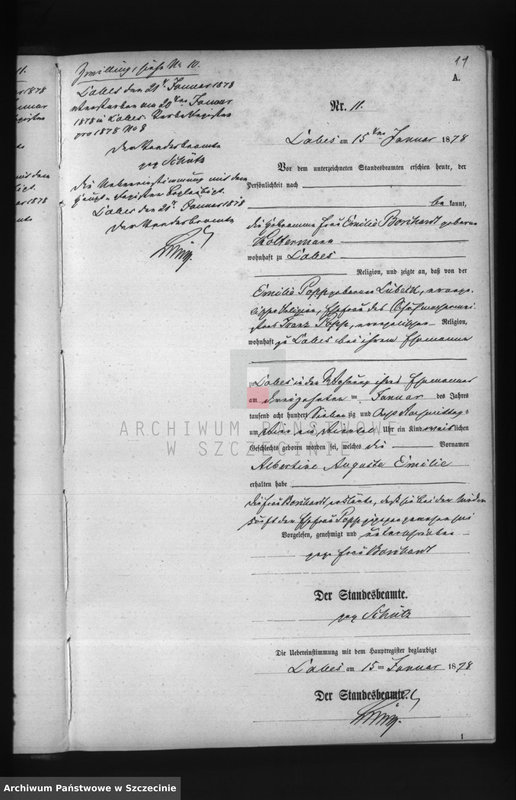 11.
A.
Zwilling, siehe Nr. 10.
Labes den 21t Januar 1878
Verstorben am 20ten Januar
1878 in Labes. Sterberegister
pro 1878 No 8
Der Standesbeamte
gez Schütz
Die Uebereinstimmung mit dem
Haupt-Register beglaubigt.
Labes den 21t Januar 1878
Der Standesbeamte
Nr. 11.
Labes am 15ten Januar 1878
Vor dem unterzeichneten Standesbeamten erschien heute, der
Persönlichkeit nach
be kannt,
die Hebeamme Frau Emilie Borchardt geborne
wohnhaft zu Labes
Religion, und zeigte an, daß von der
Emilie Popp geborenen Lübeck, evange-
lischer Religion, Ehefrau des Schuhmachermei-
sters Franz Popp, evangelischer Religion,
wohnhaft zu Labes bei ihrem Ehemanne
zu Labes in der Wohnung ihres Ehemannes
am dreizehnten Januar des Jahres
tausend acht hundert sieben zig und acht Nachmittags
um ein Uhr ein Kind weiblichen
Geschlechts geboren worden sei, welches die Vornamen
Albertine Auguste Emilie
erhalten habe
Die Frau Borchardt erklärte, daß sie bei der Nieder-
kunft der Ehefrau Popp zugegen gewesen sei
Vorgelesen, genehmigt und unterschrieben
gez Frau Borchardt
Der Standesbeamte.
gez Schütz
Die Uebereinstimmung mit dem Hauptregister beglaubigt
Labes am 15ten Januar 1878
Der Standesbeamte.
1
ARCHIWUM PAŃSTWOWE
W SZCZECINIE
Archiwum Państwowe w Szczecinie